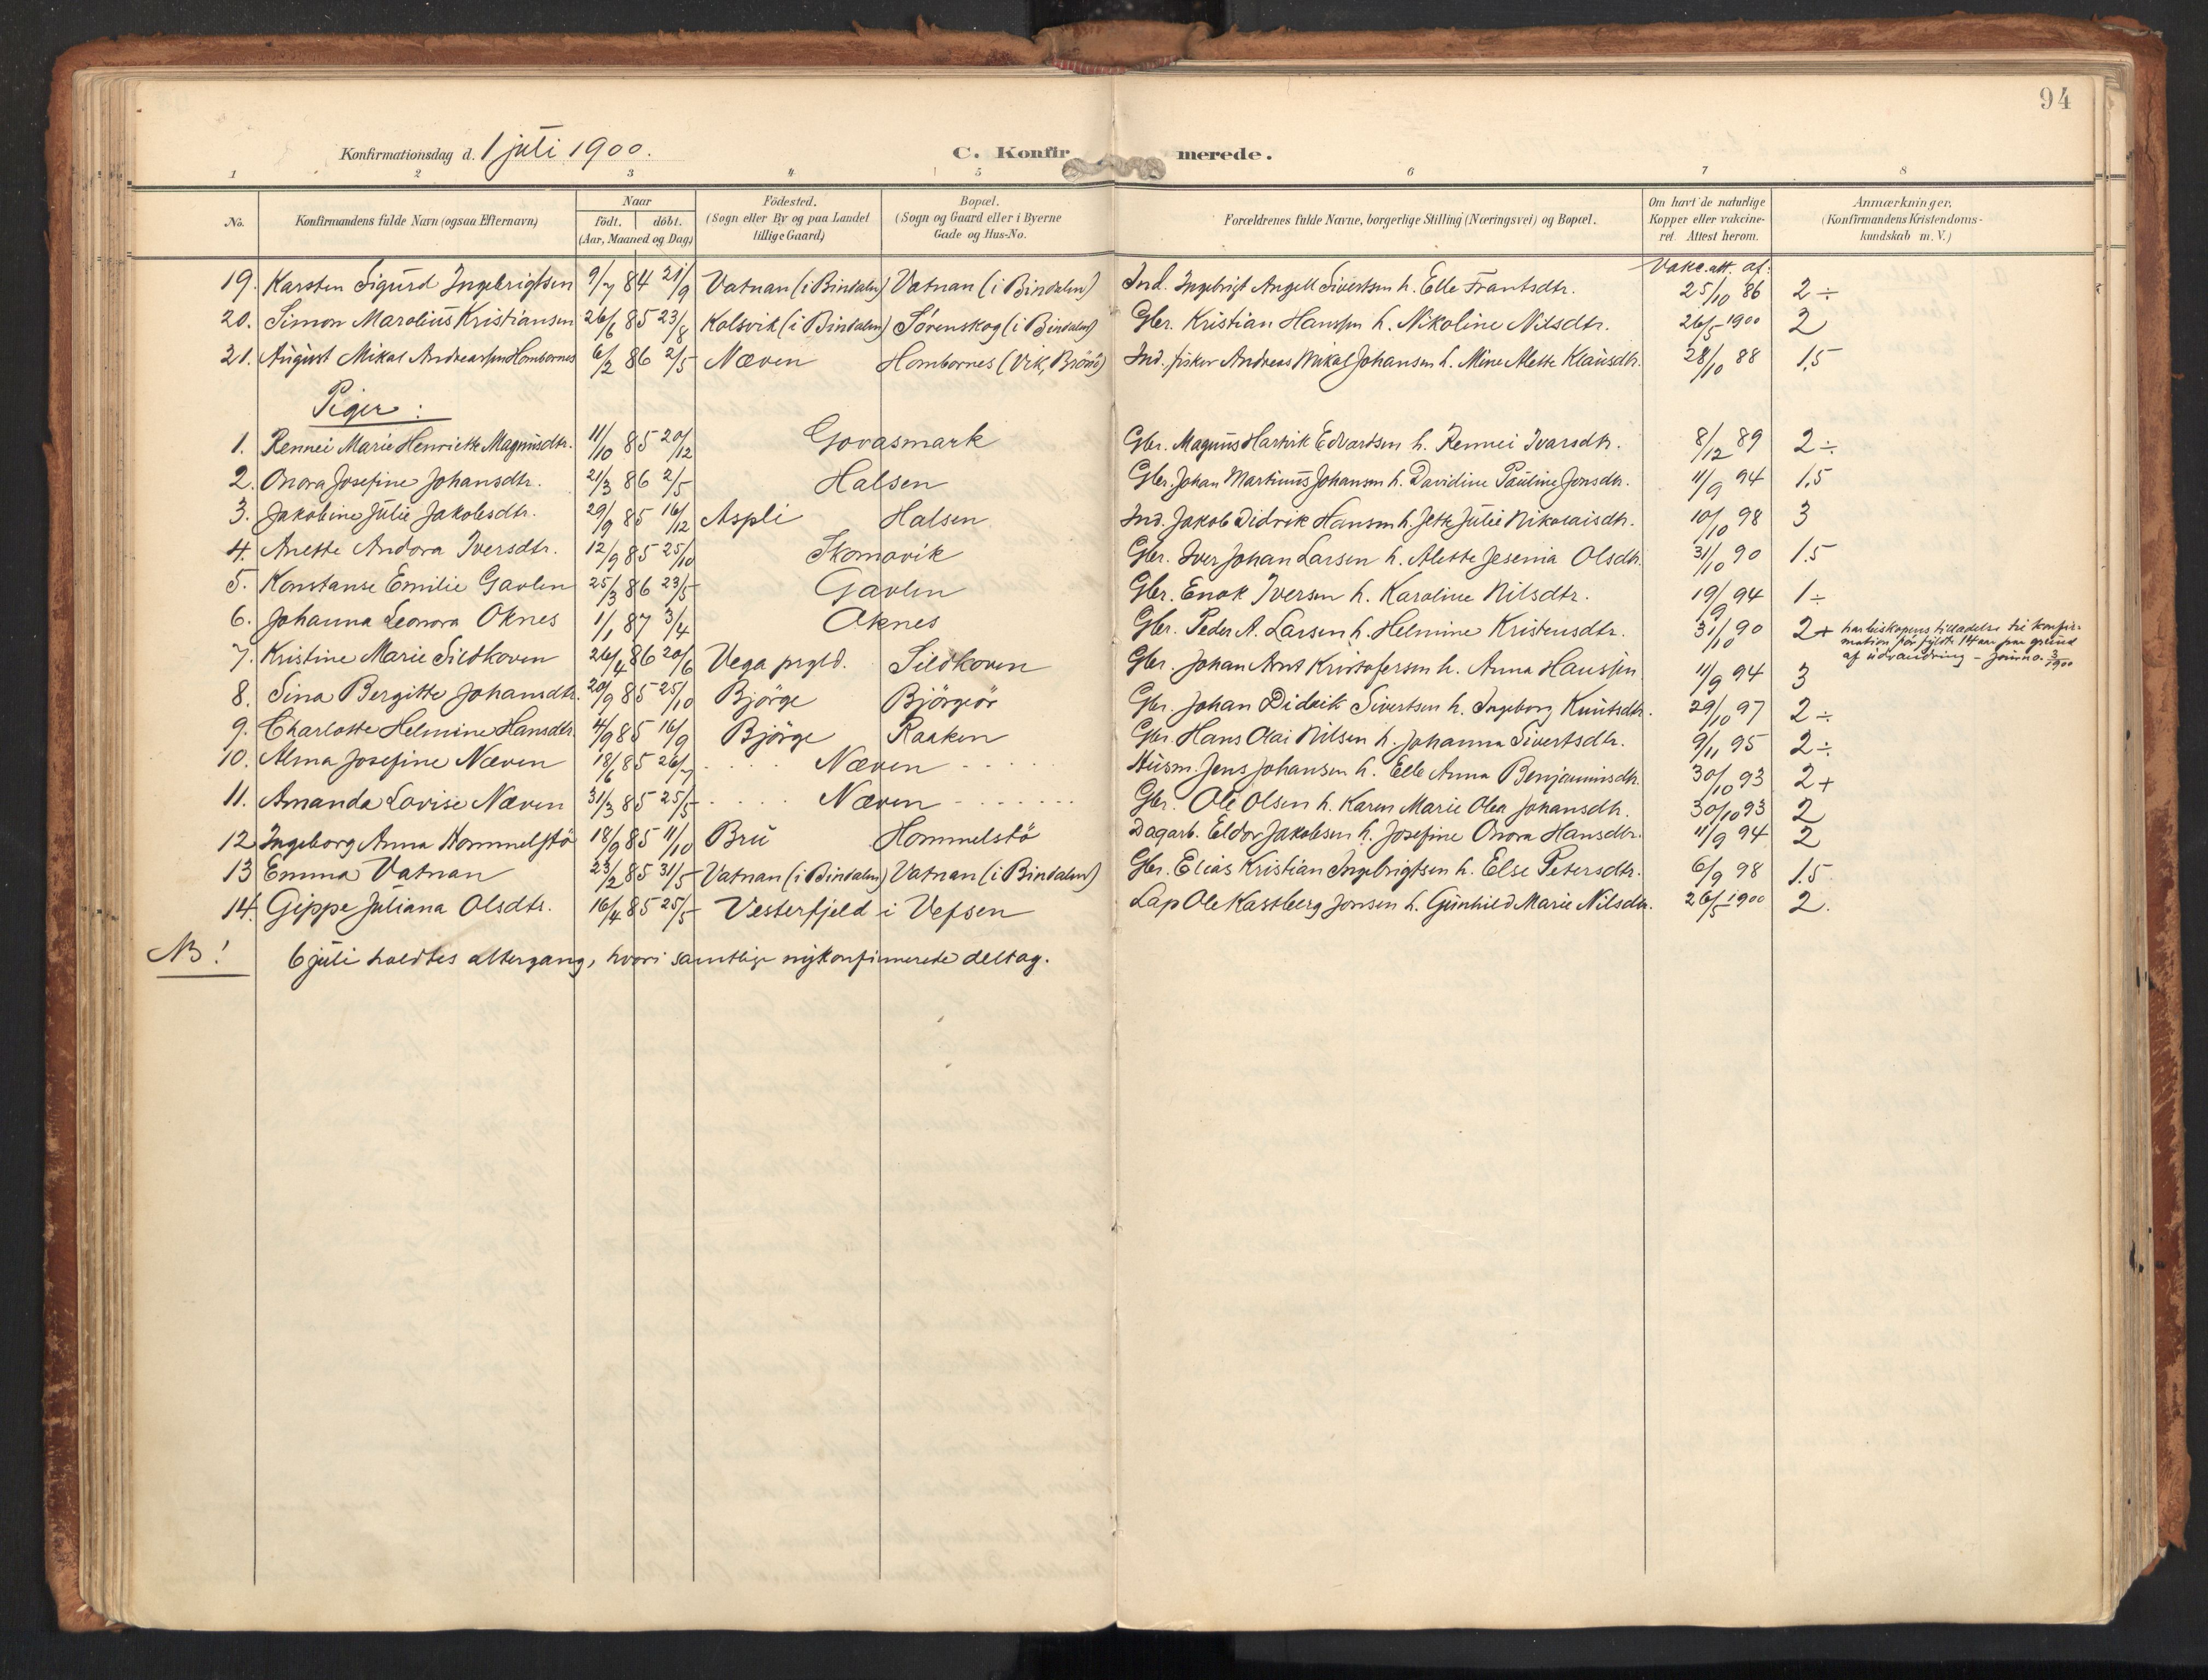 94
Konfirmationsdag d. 1 juli 1900. C. Konfirmerede.
1 2 3 4 5 6 7 8
No. Konfirmandens fulde Navn (ogsaa Efternavn) Naar födt. döbt. (Aar, Maaned og Dag) Födested. (Sogn eller By og paa Landet tillige Gaard) Bopæl. (Sogn og Gaard eller i Byerne Gade og Hus-No. Forældrenes fulde Navne, borgerlige Stilling (Næringsvei) og Bopæl. Om havt de naturlige Kopper eller vakcineret. Attest herom. Anmærkninger. (Konfirmandens Kristendomskundskab m. V.)
Vakc. att. af:
19. Karsten Sigurd Ingebrigtsen 9/7 84 21/9 Vatnan (i Bindalen) Vatnan (i Bindalen) Ind. Ingebrigt Angell Sivertsen h. Elle Frantsdtr. 25/10 86 2÷
20. Simon Marolius Kristiansen 26/6 85 23/8 Kalsvik (i Bindalen) Sørenskog (i Bindalen) Gbr. Kristian Hanssen h. Nikoline Nilsdtr. 26/5 1900 2
21. August Mikal Andreassen Hombornes 6/2 86 2/5 Næven Hombornes (Vik, Brönö) Ind. fisker Andreas Mikal Johansen h. Mine Alette Klausdtr. 28/10 88 1,5
Piger:
1. Rennei Marie Henriette Magnusdtr. 11/10 85 20/12 Govasmark Gbr. Magnus Hartvik Edvartsen h. Rennei Ivarsdtr. 8/12 89 2÷
2. Onora Josefine Johansdtr. 21/3 86 2/5 Halsen Gbr. Johan Martinus Johansen h. Davidine Pauline Jonsdtr. 11/9 94 1,5
3. Jakobine Julie Jakobsdtr. 29/9 85 16/12 Aspli Halsen Ind. Jakob Didrik Hansen h. Jette Julie Nikolaisdtr. 10/10 98 3
4. Anette Andora Iversdtr. 12/9 85 25/10 Skomovik Gbr. Iver Johan Larsen h. Alette Jesenia Olsdtr. 31/10 90 1.5
5. Konstanse Emilie Gavlen 25/3 86 23/5 Gavlen Gbr. Enok Iversen h. Karoline Nilsdtr. 19/9 94 1÷
6. Johanna Leonora Oknes 1/1 87 3/4 Oknes Gbr. Peder A. Larsen h. Helmine Kristensdtr. 31/10 90 2+ har biskopens tilladelse til konfirmation før fyldte 14 aar paa grund af udvandring - Journo. 3/1900
7. Kristine Marie Sildhoven 26/4 86 20/6 Vega prgld. Sildhoven Gbr. Johan Arnt Kristofersen h. Anna Hanssen 11/9 94 3
8. Sina Bergitte Johansdtr. 20/9 85 25/10 Björge Björgeör Gbr. Johan Didrik Sivertsen h. Ingeborg Knutsdtr. 29/10 97 2÷
9. Charlotte Helmine Hansdtr. 4/9 85 16/9 Björge Raaken Gbr. Hans Olai Nilsen h. Johanna Sivertsdtr. 9/11 95 2÷
10. Alma Josefine Næven 18/6 85 26/7 Næven Husm. Jens Johansen h. Elle Anna Benjaminsdtr. 30/10 93 2+
11. Amanda Lovise Næven 31/3 85 25/5 Næven Gbr. Ole Olsen h. Karen Marie Olea Johansdtr. 30/10 93 2
12 Ingeborg Anna Hommelstö 18/9 85 11/10 Bru Hommelstö Dagarb. Eldor Jakobsen h. Josefine Onora Hansdtr. 11/9 94 2
13 Emma Vatnan 23/2 85 31/5 Vatnan (i Bindalen) Vatnan (i Bindalen) Gbr. Elias Kristian Ingebrigtsen h. Else Petersdtr. 6/9 98 1.5
14. Gippe Juliana Olsdtr. 16/4 85 25/5 Vesterfjeld i Vefsen Lap Ole Kastberg Jonsen h. Gunhild Marie Nilsdtr. 26/5 1900 2.
NB! 6 juli holdtes altergang, hvori samtlige nykonfirmerede deltog.